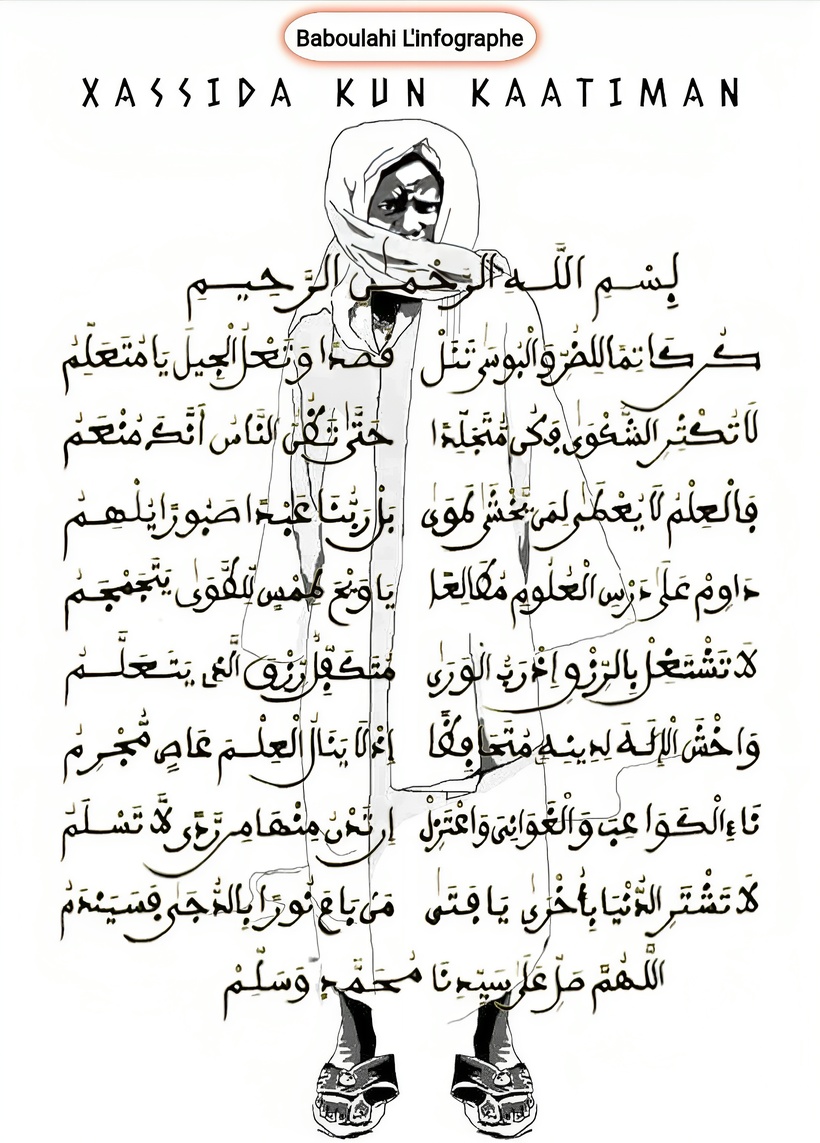 Baboulahi L'infographe
XASSIDA KUN KAATIMAN
بِسْمِ اللَّهِ الرَّحْمَنِ الرَّحِيمِ
كُن كَاتِمًا لِلضُّرِّ وَالْبُوسَى تَنَلْ قَصْدًا وَتَعْلُ الْجِيلَ يَا مُتَعَلِّمُ
لَا تُكْثِرِ الشَّكْوَى فَكُن مُتَجَلِّدًا حَتَّى تَظُنَّ النَّاسُ أَنَّكَ مُنْعَمُ
فَالْعِلْمُ لَا يُعْطَى لِمَن يَخْشَى طَوَى بَلْ رَبُّنَا عَبْدًا صَبُورًا يُلْهِمُ
دَاوِمْ عَلَى دَرْسِ الْعُلُومِ مُطَالِعًا يَا وَيْحَ لِلطَّوَى يَتَجَمْجَمُ
لَا تَشْتَغِلْ بِالرِّزْقِ إِذْ رَبُّ الْوَرَى مُتَكَفِّلٌ رِزْقَ الَّذِي يَتَعَلَّمُ
وَاخْشَ الْإِلَهَ لِدِينِهِ مُتَحَافِظًا إِذْ لَا يَنَالُ الْعِلْمَ عَاصٍ مُجْرِمُ
نَاءِ الْكَوَاعِبَ وَالْغَوَانِي وَاعْتَزِلْ إِن تَدْنُ مِنْهَا مِن رَّدًى لَّا تَسْلَمُ
لَا تَشْتَرِ الدُّنْيَا بِأُخْرَى يَا فَتَى مَن بَاعَ نُورًا بِالدُّجَى فَسَيَنْدَمُ
اللَّهُمَّ صَلِّ عَلَى سَيِّدِنَا مُحَمَّدٍ وَسَلِّمْ